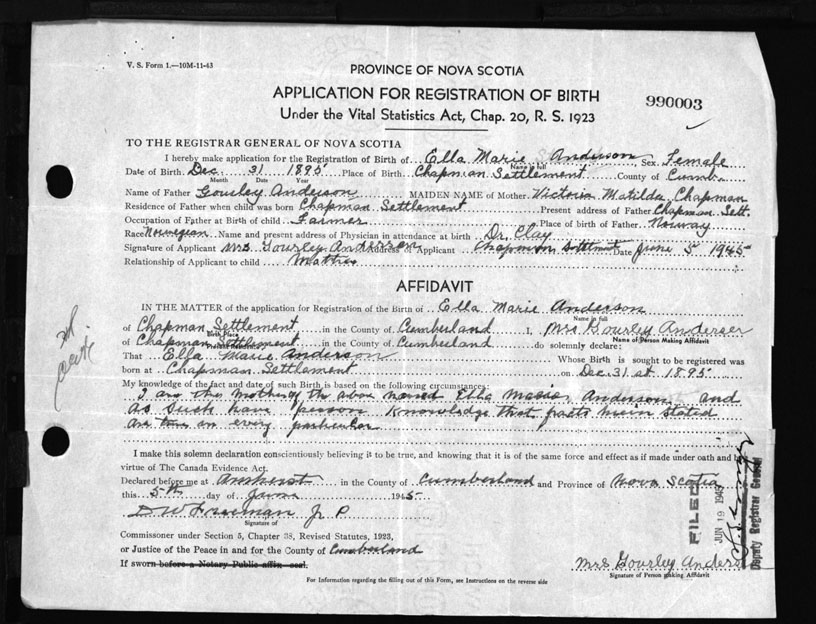 V. S. Form 1.—10M-11-43
PROVINCE OF NOVA SCOTIA
APPLICATION FOR REGISTRATION OF BIRTH
990003
Under the Vital Statistics Act, Chap. 20, R. S. 1923
TO THE REGISTRAR GENERAL OF NOVA SCOTIA
I hereby make application for the Registration of Birth of Ella Marie Anderson Sex Female
Name in full
Date of Birth Dec 31 1895 Place of Birth Chapman Settlement County of Cumb.
Month Date Year
Name of Father Gourley Anderson MAIDEN NAME of Mother Victoria Matilda Chapman
Residence of Father when child was born Chapman Settlement Present address of Father Chapman Sett.
Occupation of Father at Birth of child Farmer Place of birth of Father Norway
Race Norwegian Name and present address of Physician in attendance at birth Dr. Clay
Signature of Applicant Mrs Gourley Anderson Address of Applicant Chapman Settlment Date June 5 1945
Relationship of Applicant to child Mother
AFFIDAVIT
IN THE MATTER of the application for Registration of the Birth of Ella Marie Anderson
Name in full
of Chapman Settlement in the County of Cumberland I, Mrs Gourley Anderson
Birth Place Name of Person Making Affidavit
of Chapman Settlement in the County of Cumberland do solemnly declare:
Present Residence
That Ella Marie Anderson Whose Birth is sought to be registered was
born at Chapman Settlement on Dec. 31 st 1895
My knowledge of the fact and date of such Birth is based on the following circumstances:
I am the mother of the above named Ella Anderson and
as such have person knowledge that facts herein stated
are true in every particular
I make this solemn declaration conscientiously believing it to be true, and knowing that it is of the same force and effect as if made under oath and by
virtue of The Canada Evidence Act.
Declared before me at Amherst in the County of Cumberland and Province of Nova Scotia
this 5th day of June 1945
D W Freeman J P
Signature of
Commissioner under Section 5, Chapter 38, Revised Statutes, 1923,
or Justice of the Peace in and for the County of Cumberland
If sworn before a Notary Public affix seal.
Mrs Gourley Anders
Signature of Person Making Affidavit
For Information regarding the filling out of this Form, see Instructions on the reverse side
FILED
JUN 19 1945
Deputy Registrar General